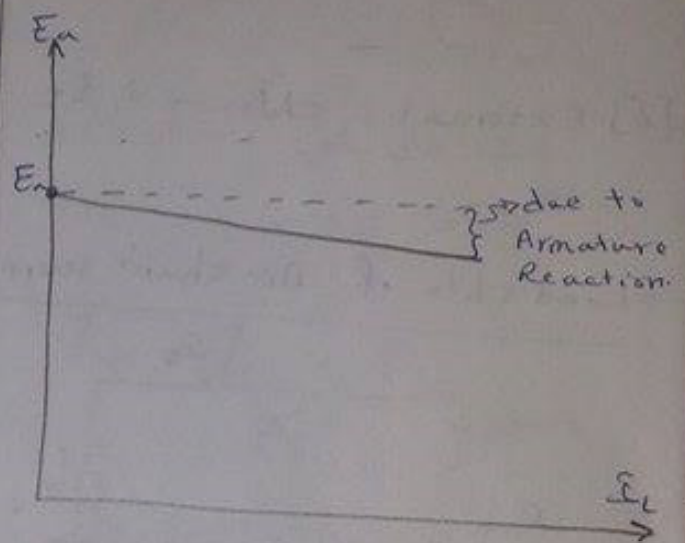 Ea
Ea
due to
Armature
Reaction.
IL